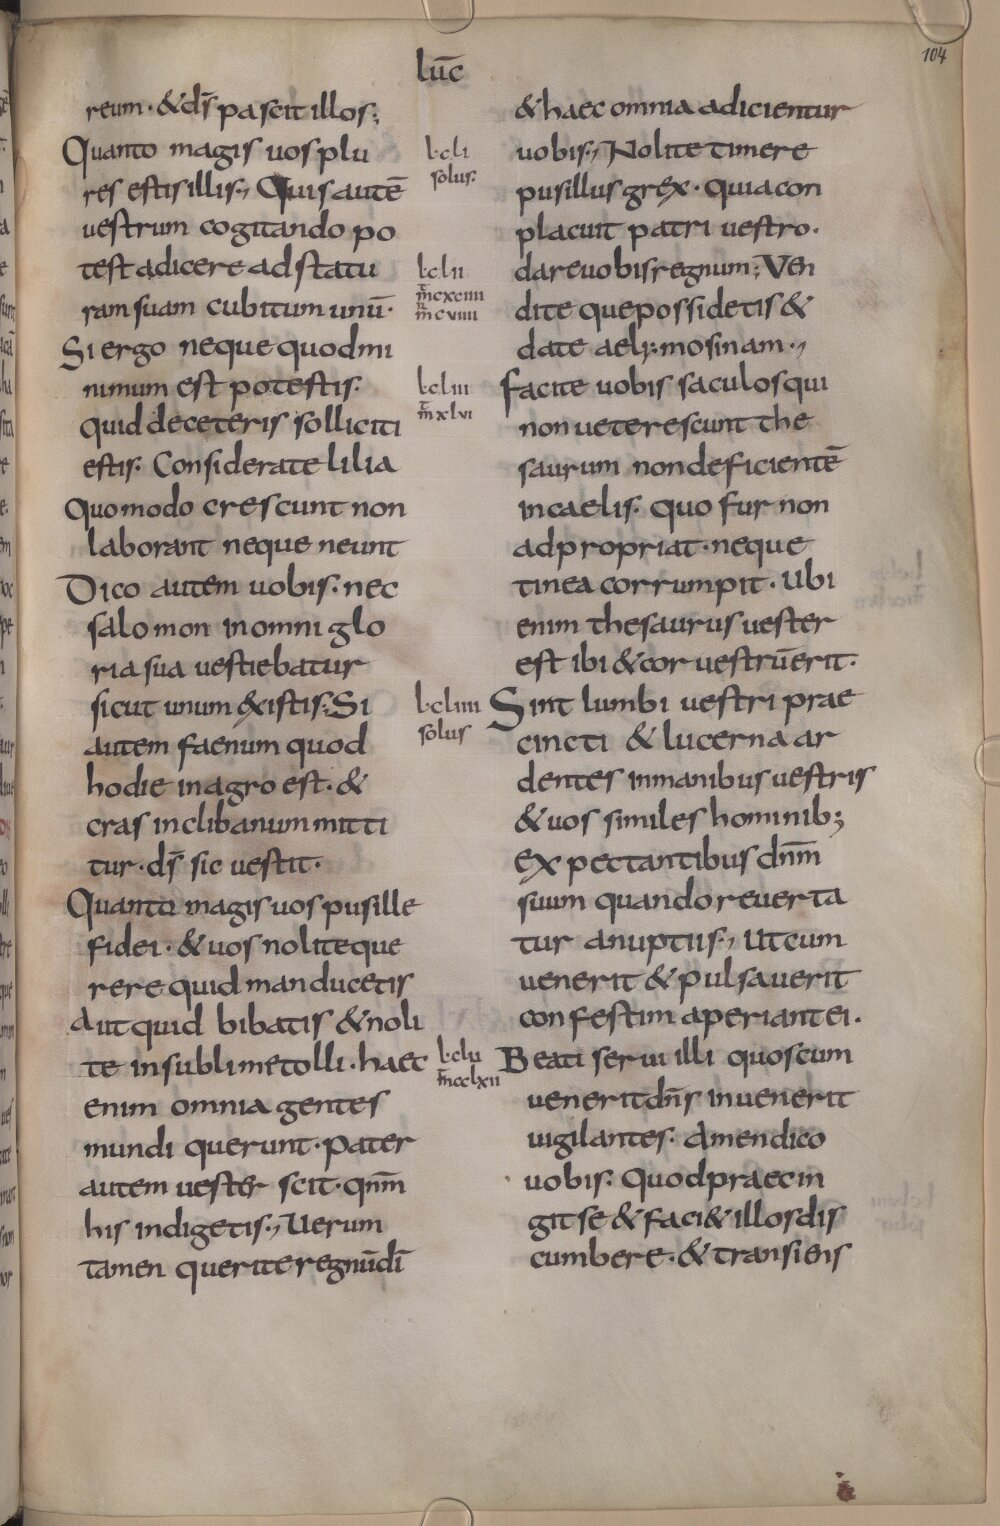 lūc
104
reum · & ds̄ pascit illos;
Quanto magis uos plu
res estis illis., Quis autē
uestrum cogitando po
test adicere ad statu
ram suam cubitum unū·
Si ergo neque quod mi
nimum est potestis·
quid de ceteris solliciti
estis· Considerate lilia
Quomodo crescunt non
laborant neque neunt
Dico autem uobis· nec
salomon in omni glo
ria sua uestiebatur
sicut unum ex istis; Si
autem faenum quod
hodie in agro est · &
cras in clibanum mitti
tur · ds̄ sic uestit·
Quanto magis uos pusille
fidei · & uos nolite que
rere quid manducetis
Aut quid bibatis & noli
te in sublime tolli · haec
enim omnia gentes
mundi querunt· pater
autem uester scit· qnm̄
his indigetis., Uerum
tamen querite regnū dī
l·cli
solus·
l·clii
m̄cxciiii
m̄cuiiii
l·cliii
m̄xlvi
l·cliiii
solus
l·clu
m̄cclxii
& haec omnia adicientur
uobis., Nolite timere
pusillus grex · Quia con
placuit patri uestro·
dare uobis regnum; Ven
dite que possidetis &
date aelymosinam.,
facite uobis saculos qui
non ueterescunt the
saurum non deficientē
in caelis· Quo fur non
adpropriat· neque
tinea corrumpit · Ubi
enim thesaurus uester
est ibi & cor uestrū erit·
Sint lumbi uestri prae
cincti & lucerna ar
dentes in manibus uestris
& uos similes hominib;
expectantibus dnm̄
suum quando reuerta
tur a nuptiis., Ut cum
uenerit & pulsauerit
confestim aperiant ei·
Beati serui illi quos cum
uenerit dns̄ inuenerit
uigilantes· Amen dico
uobis· Quod praecin
git se & faci& illos dis
cumbere· & transiens